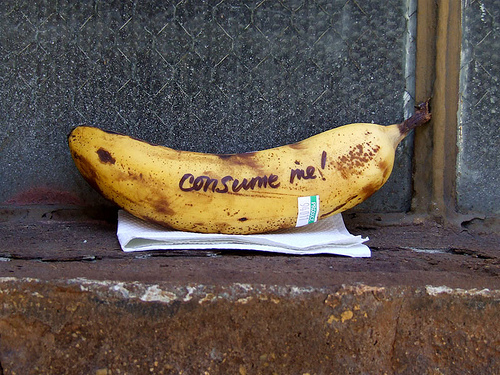 consume me!